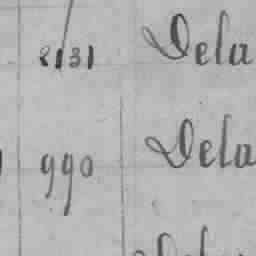 8131 Dela
990 Dela